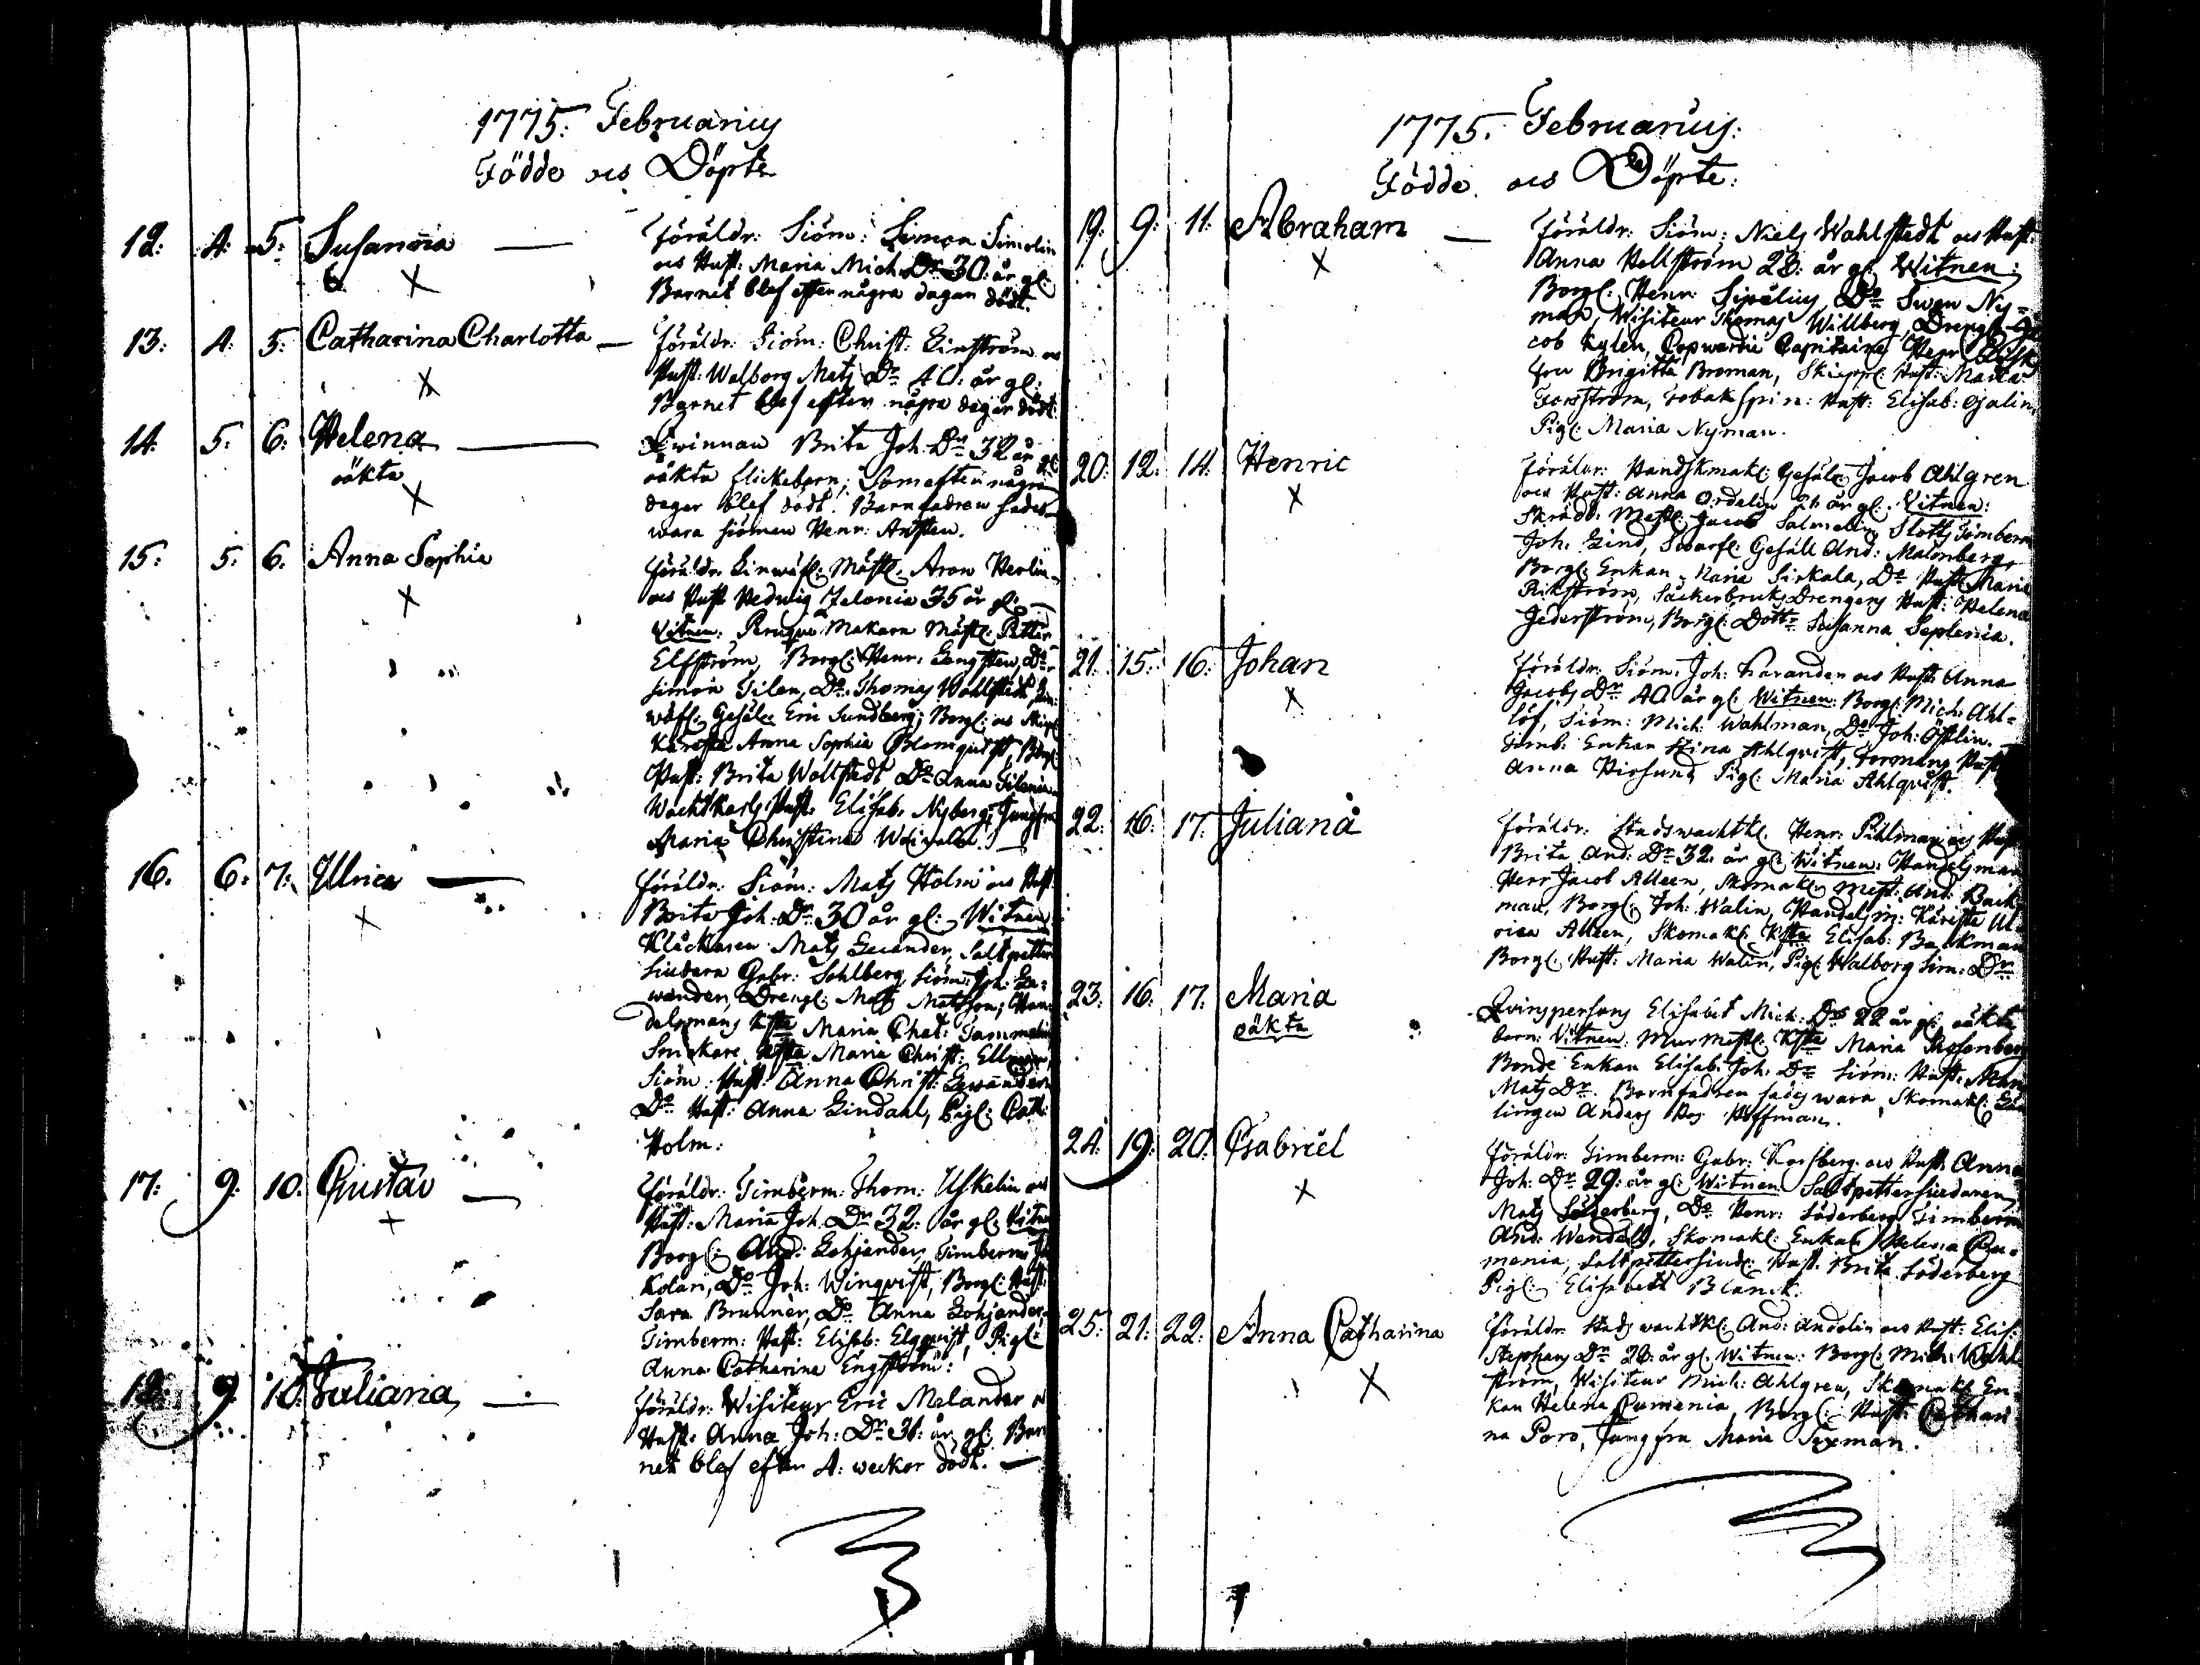 1775. Februarius
Födde och Döpte
12: 4: 5: Susanna — Föräldr: Siöm: Simon Simolin
och Hust: Maria Mich: Dr 30: år gl:
Barnet blef efter några dagar dödt.
13: 4: 5: Catharina Charlotta — Föräldr: Siöm: Christ: Linström och
Hust: Walborg Mats Dr 40: år gl:
Barnet blef efter några dagar dödt.
14: 5: 6: Helena — Qwinnan Brita Joh: Dr 32 år gl
oäkta oäkta flickebarn, som efter några
dagar blef dödt. Barnfadren sades
wara siöman Henr:
15: 5: 6. Anna Sophia Föräldr: Linwäf: Mäst: Aron Herlin
och Hust: Hedwig 35 år gl:
Witnen: Peruque Makare Mäst: Petter
Elfström, Borg: Henr: Lengsten, Do
Simon Tilen, Do Thomas Wahlstedt Lin:
wäf: Gesäll Eric Sundberg, Borg: och
Käresta Anna Sophia Blomquist, Borg:
Hust: Brita Wolstedt Do Anna Tilenia
Wachtkarls Hust: Elisab: Nyberg, Jungfru
Maria Christina
16. 6: 7: Ulrica — Föräldr: Siöm: Mats Holm och Hust:
Brita Joh: Dr 30 år gl: Witnen
Klåckaren Mats Salpetter
siudare Gabr: Sohlberg, Siöm: Joh: Le=
wander, Drengl: Mats Matsson, Han
delsmans Ksta Maria Chat:
Ksta Maria Christ:
Siöm: Hust: Anna Christ: Lewander
Do Hust: Anna Lindahl, Pigl: Cath:
Holm:
17: 9: 10: Gustav — Föräldr: Timberm: Thom: Uskelin och
Hust: Maria Joh: Dr 32: år gl: Witn
Borg: And: Lohjander, Timberm:
Kolari, Do Joh: Winqvist, Borg: Hust:
Sara Brunner, Do Anna Lohjander,
Timberm: Hust: Elisab: Elgqvist, Pigl:
Anna Catharina Engström:
18: 9: 10: Juliana — Föräldr: Wisiteur Eric Melander och
Hust: Anna Joh: Dr 31: år gl: Bar
net blef efter 4: weckor dödt. —
1775. Februarius:
Födde och Döpte:
19: 9: 11: Abraham — Föräldr: Siöm: Niels Wahlstedt och Hust:
Anna Hellström 28: år gl: Witnen:
Borg: Henr: Sipelius, Do Swen Ny=
man, Wisiteur Thomas Willberg, Drengl: Ja
cob Kylen, Copwardie Capitaine Herr
fru Brigitta Broman, Skiepp: Hust: Maria
Forsström, Tobakspin: Hust: Elisab:
Pigl: Maria Nyman.
20: 12: 14: Henric Föräldr: Handskmak: Gesäll Jacob Ahlgren
och Hust: Anna år gl: Witnen:
Skrädd: Mest: Jacob Salmelin, Slotts Timberm
Joh: Lind, Swarf: Gesäll And: Malmberg,
Borg: Enkan Maria Sirkala, Do Hust: Maria
Rikström, Säckerbruks Drengens Hust: Helena
Jederström, Borg: Dottr Susanna Seplenia.
21: 15: 16: Johan Föräldr: Siöm: Joh: och Hust: Anna
Jacobs Dr 40 år gl: Witnen: Borg: Mich: Ahl=
löf, Siöm: Mich: Wahlman, Do Joh: Östlin.
Timb: Enkan Stina Ahlqvist, Formans Hust
Anna Pigl: Maria Ahlqvist.
22: 16: 17: Juliana Föräldr: Stadswachtk: Henr: Pihlman och Hust
Brita And: Dr 32: år gl: Witnen: Handelsman
Herr Jacob Alleen, Skomak: Mest: And: Back
man, Borg: Joh: Walin, Handelsm: Käresta Ul
rica Alleen, Skomak: Ksta Elisab: Backman
Borg: Hust: Maria Walin, Pigl: Walborg Sim: Dr
23: 16: 17: Maria Qvinspersons Elisabet Mich: Dr 22 år gl: oäkta
oäkta barn: Witnen: Murmest: Ksta Maria Rosenberg
Bonde Enkan Elisab: Joh: Dr Siöm: Hust: Maria
Mats Dr. Barnfadren sades wara Skomak: Lär
lingen Anders Hoffman.
24: 19: 20: Gabriel Föräldr: Timberm: Gabr: Korsberg och Hust: Anna
Joh: Dr 29: år gl: Witnen: Saltpettersiudaren
Mats Söderberg, Do Henr: Söderberg Timberm
And: Wendell, Skomak: Enkan Helena Pu=
menia, Saltpettersiud: Hust: Brita Söderberg
Pigl: Elisabeth Blanck.
25: 21: 22: Anna Catharina Föräldr: Stads wachtk: And: Andolin och Hust: Elis:
Stephans Dr 28: år gl: Witnen: Borg: Mich: Wahl
ström, Wisiteur Mich: Ahlgren, Skomak: En
kan Helena Pumenia, Borg: Hust: Cathari
na Poro, Jungfru Maria Texman.